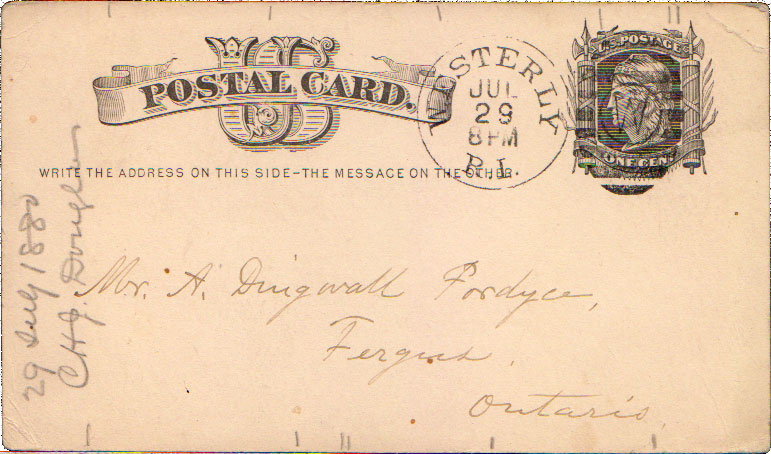 US
POSTAL CARD.
WRITE THE ADDRESS ON THIS SIDE–THE MESSAGE ON THE OTHER.
WESTERLY
JUL
29
8PM
R.I.
U.S. POSTAGE
ONE CENT
Mr. A. Dingwall Fordyce,
Fergus.
Ontario.
29 July 1880